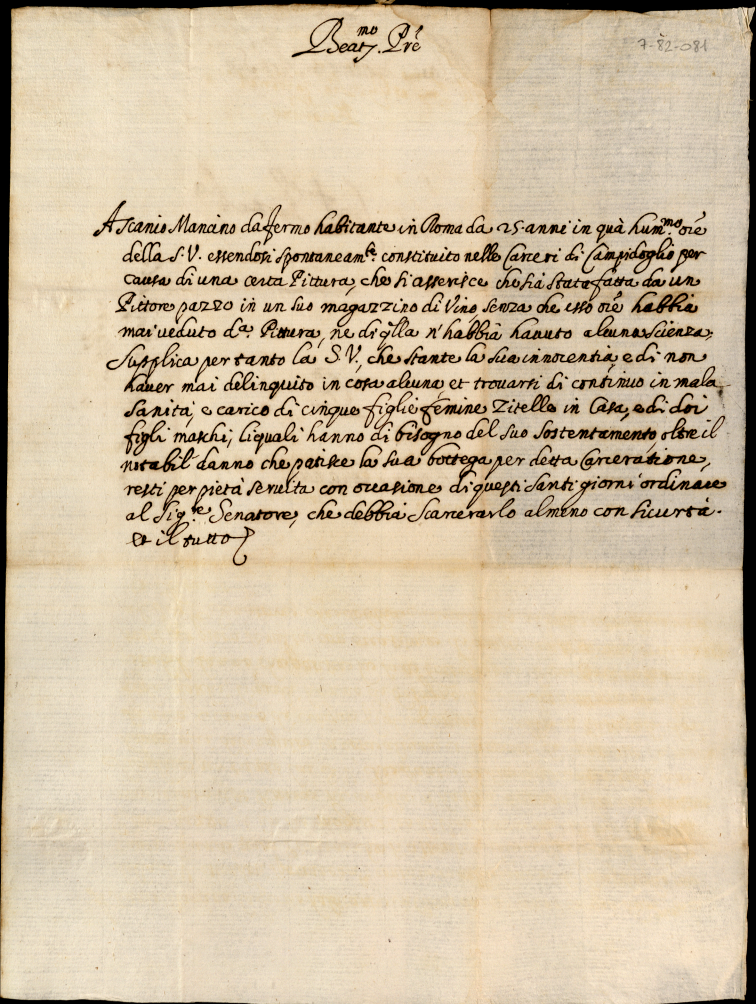 Beat.mo Prẽ
7-82-081
Ascanio Mancino da fermo habitante in Roma da 25 anni in quà hum.mo orẽ
della S.V. essendosi spontaneam.te constituito nelle Carceri di Campidoglio per
causa di una certa Pittura, che si asserisce che sia stata fatta da un
Pittore pazzo in un suo magazzino di Vino senza che esso orẽ habbia
mai veduto d.a Pittura, ne di q̃lla n'habbia havuto alcuna scienza,
Supplica per tanto la S.V., che stante la sua innocentia, e di non
haver mai delinquito in cosa alcuna et trovarsi di continuo in mala
sanità, e carico di cinque figlie femine Zitelle in Casa, e di doi
figli maschi, liquali hanno di bisogno del suo sostentamento oltre il
notabil' danno che patisce la sua bottega per detta Carceratione,
resti per pietà servita con occasione di questi santi giorni ordinare
al Sig.re Senatore, che debbia scarcerarlo almeno con sicurtà.
Et il tutto